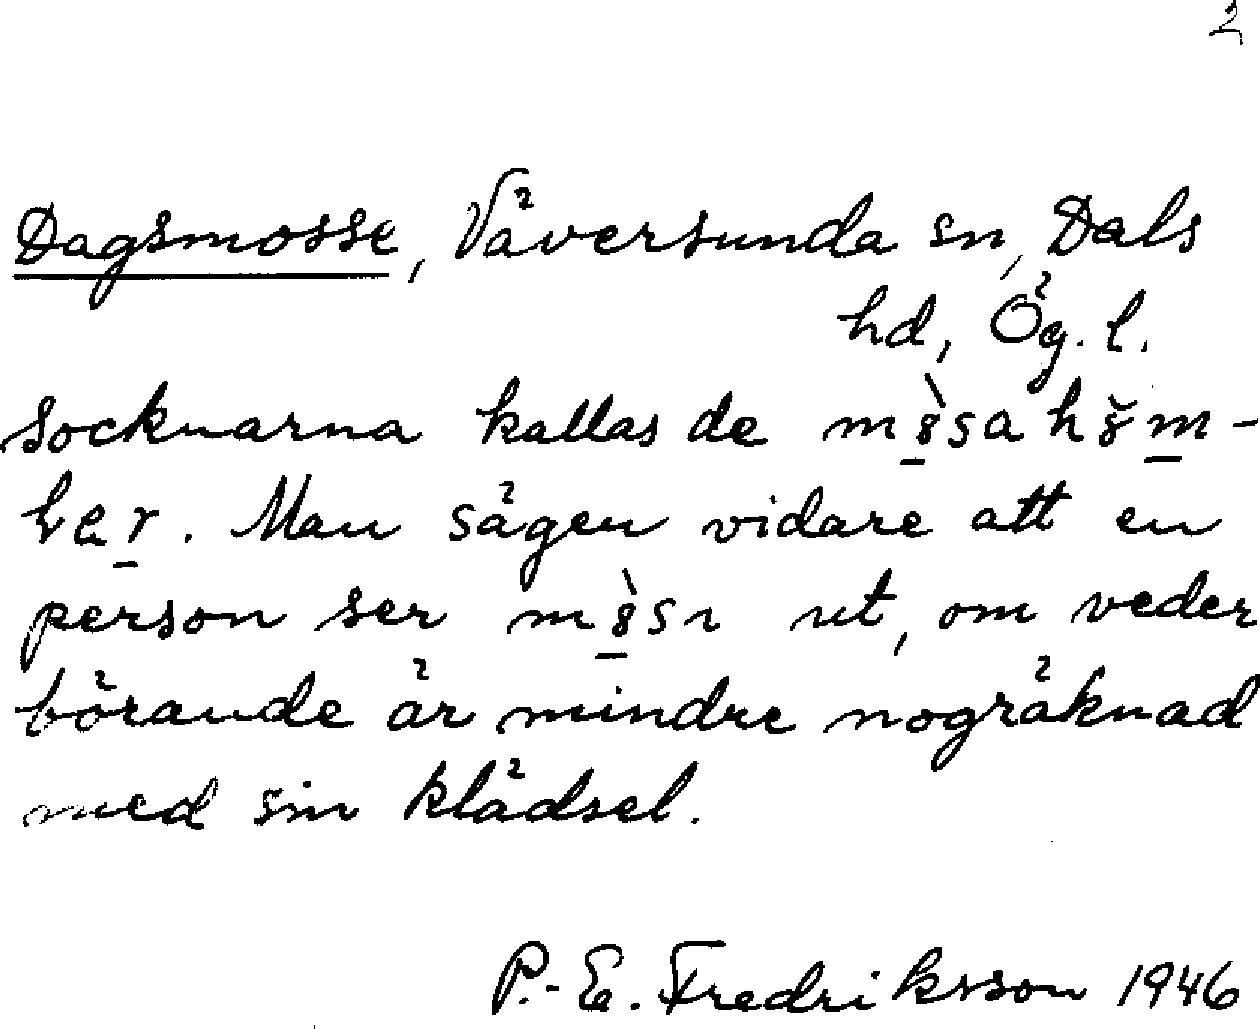 2
Dagsmosse, Väversunda sn, Dals
hd, Ög. l.
socknarna kallas de
. Man sägen vidare att en
person ser ut, om veder
börande är mindre nogräknad
med sin klädsel.
P.-E. Fredriksson 1946